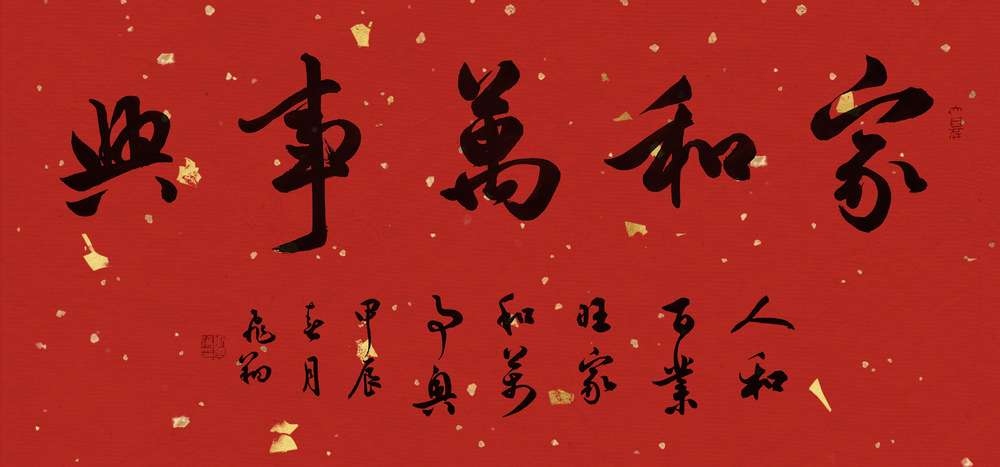 家和萬事興
人和
百業
旺家
和萬
事興
甲辰
春月